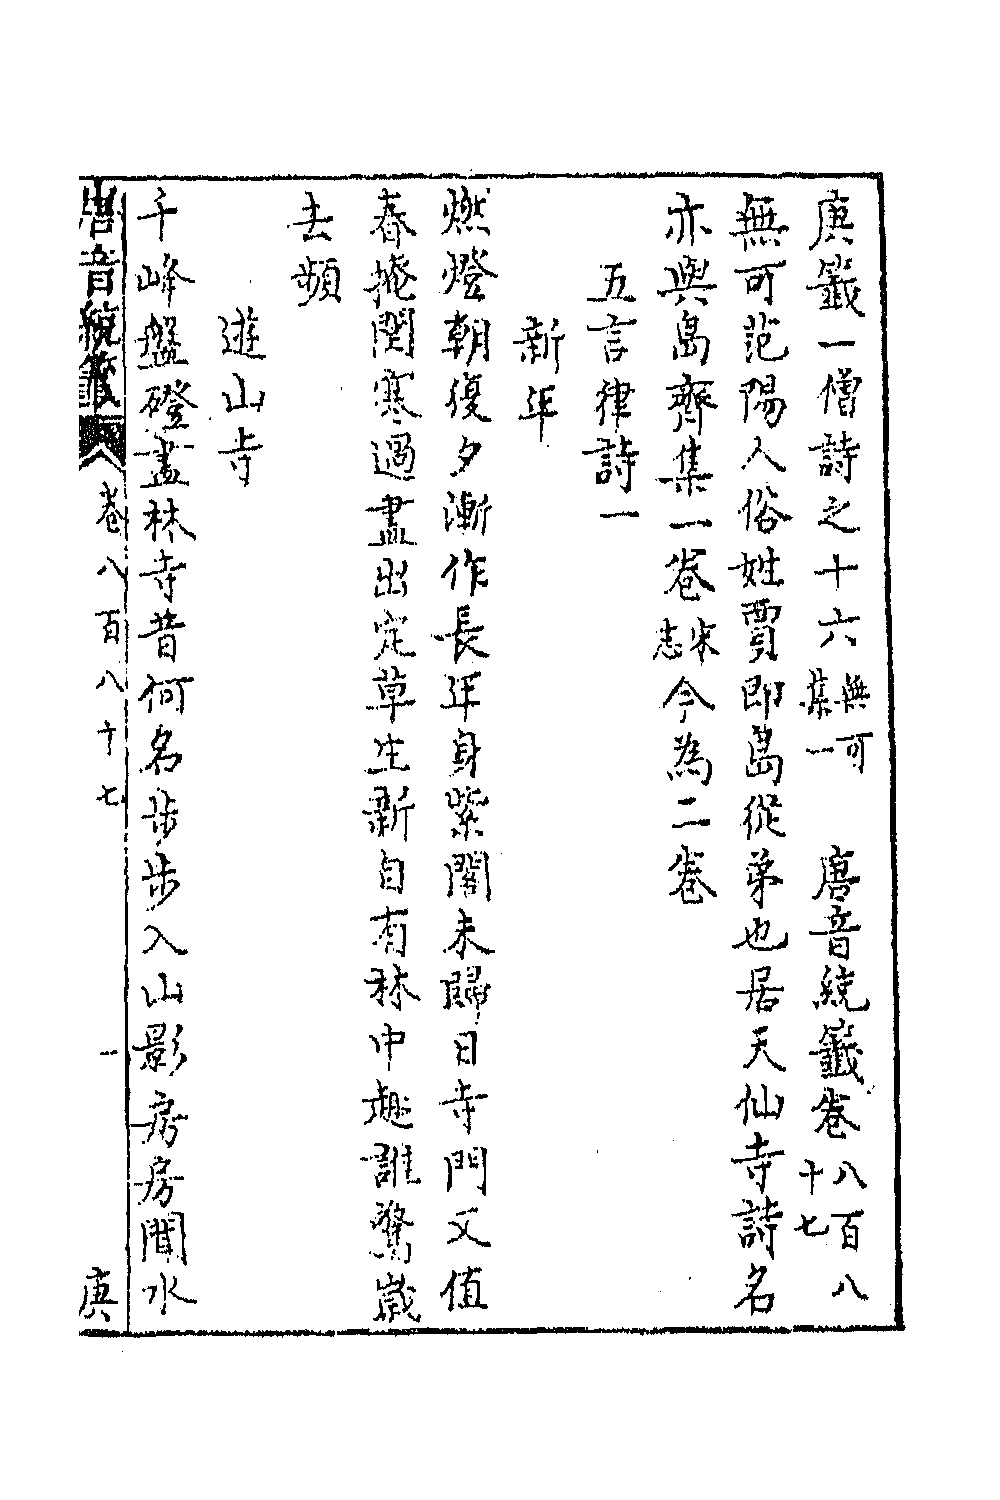 庚籤一僧詩之十六無可集一　唐音統籤卷八百八十七
無可范陽人俗姓賈即島從弟也居天仙寺詩名
亦與島齊集一卷宋志今為二卷
五言律詩一
新年
燃燈朝復夕漸作長年身紫閣未歸日寺門又值
春掩関寒過盡出定草生新自有林中趣誰驚歲
去頻
遊山寺
千峰盤磴盡林寺昔何名步步入山影房房聞水
唐音統籤　卷八百八十七　一　庚